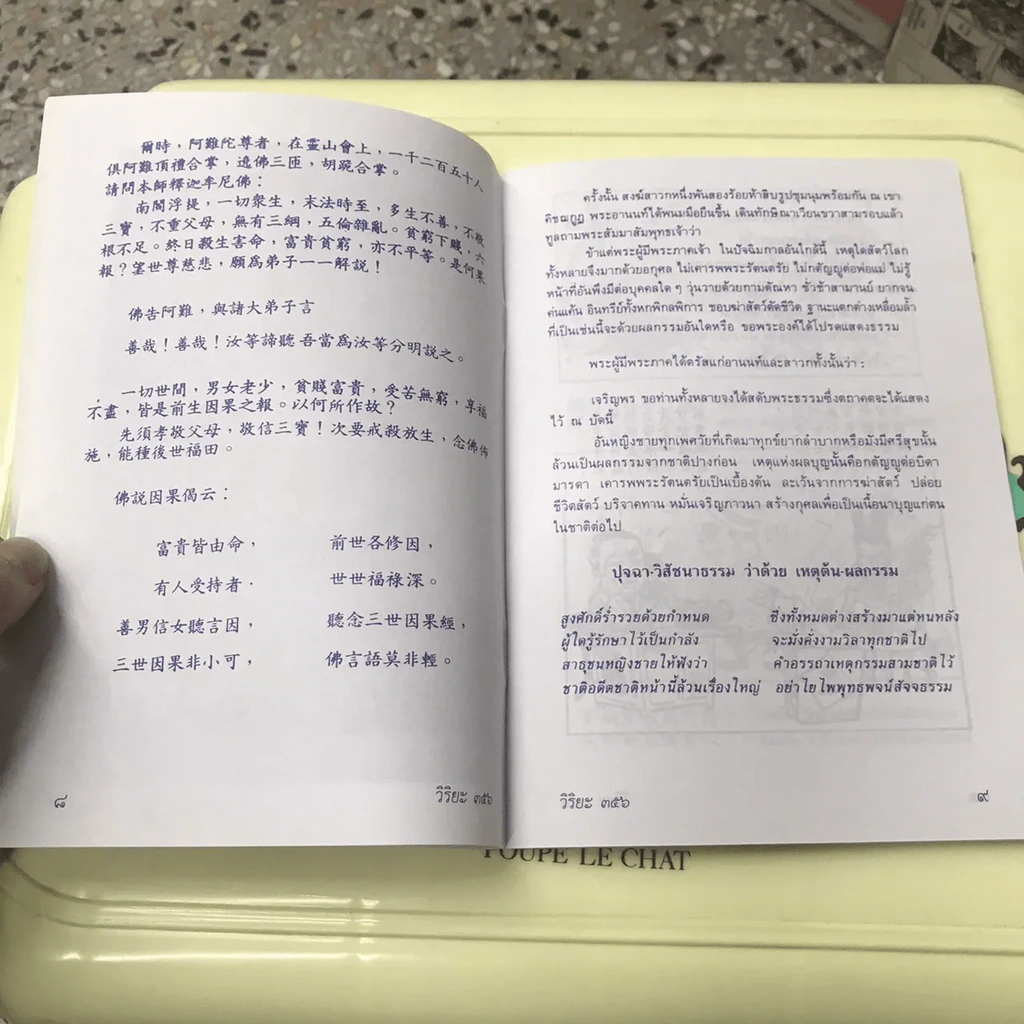 爾時，阿難陀尊者，在靈山會上，一千二百五十人
俱阿難頂禮合掌，遶佛三匝，胡跪合掌。
請問本師釋迦牟尼佛：
南閻浮提，一切衆生，末法時至，多生不善，不敬
三寶，不重父母，無有三綱，五倫雜亂。貧窮下賤，六
根不足。終日殺生害命，富貴貧窮，亦不平等。是何果
報？望世尊慈悲，願爲弟子一一解說！
佛告阿難，與諸大弟子言
善哉！善哉！汝等諦聽吾當爲汝等分明說之。
一切世間，男女老少，貧賤富貴，受苦無窮，享福
不盡，皆是前生因果之報。以何所作故？
先須孝敬父母，敬信三寶！次要戒殺放生，念佛佈
施，能種後世福田。
佛說因果偈云：
富貴皆由命， 前世各修因，
有人受持者． 世世福祿深。
善男信女聽言因， 聽念三世因果經，
三世因果非小可， 佛言語莫非輕。
๘ วิริยะ ๓๕๖
ครั้งนั้น สงฆ์สาวกหนึ่งพันสองร้อยห้าสิบรูปชุมนุมพร้อมกัน ณ เขา
คิชฌกูฏ พระอานนท์ได้พนมมือยืนขึ้น เดินทักษิณาเวียนขวาสามรอบแล้ว
ทูลถามพระสัมมาสัมพุทธเจ้าว่า
ข้าแต่พระผู้มีพระภาคเจ้า ในปัจฉิมกาลอันใกล้นี้ เหตุใดสัตว์โลก
ทั้งหลายจึงมากด้วยอกุศล ไม่เคารพพระรัตนตรัย ไม่กตัญญูต่อพ่อแม่ ไม่รู้
หน้าที่อันพึงมีต่อบุคคลใด ๆ วุ่นวายด้วยกามตัณหา ชั่วช้าสามานย์ ยากจน
ค่นแค้น อินทรีย์ทั้งหกพิกลพิการ ชอบฆ่าสัตว์ตัดชีวิต ฐานะแตกต่างเหลื่อมล้ำ
ที่เป็นเช่นนี้จะด้วยผลกรรมอันใดหรือ ขอพระองค์ได้โปรดแสดงธรรม
พระผู้มีพระภาคได้ตรัสแก่อานนท์และสาวกทั้งนั้นว่า :
เจริญพร ขอท่านทั้งหลายจงได้สดับพระธรรมซึ่งตถาคตจะได้แสดง
ไว้ ณ บัดนี้
อันหญิงชายทุกเพศวัยที่เกิดมาทุกข์ยากลำบากหรือมั่งมีศรีสุขนั้น
ล้วนเป็นผลกรรมจากชาติปางก่อน เหตุแห่งผลบุญนั้นคือกตัญญูต่อบิดา
มารดา เคารพพระรัตนตรัยเป็นเบื้องต้น ละเว้นจากการฆ่าสัตว์ ปล่อย
ชีวิตสัตว์ บริจาคทาน หมั่นเจริญภาวนา สร้างกุศลเพื่อเป็นเนื้อนาบุญแก่ตน
ในชาติต่อไป
ปุจฉา-วิสัชนาธรรม ว่าด้วย เหตุต้น-ผลกรรม
สูงศักดิ์ร่ำรวยด้วยกำหนด ซึ่งทั้งหมดต่างสร้างมาแต่หนหลัง
ผู้ใดรู้รักษาไว้เป็นกำลัง จะมั่งคั่งงามวิลาทุกชาติไป
สาธุชนหญิงชายให้ฟังว่า คำอรรถาเหตุกรรมสามชาติไว้
ชาติอดีตชาติหน้านี้ล้วนเรื่องใหญ่ อย่าไยไพพุทธพจน์สัจจธรรม
วิริยะ ๓๕๖ ๙
POUPE LE CHAT